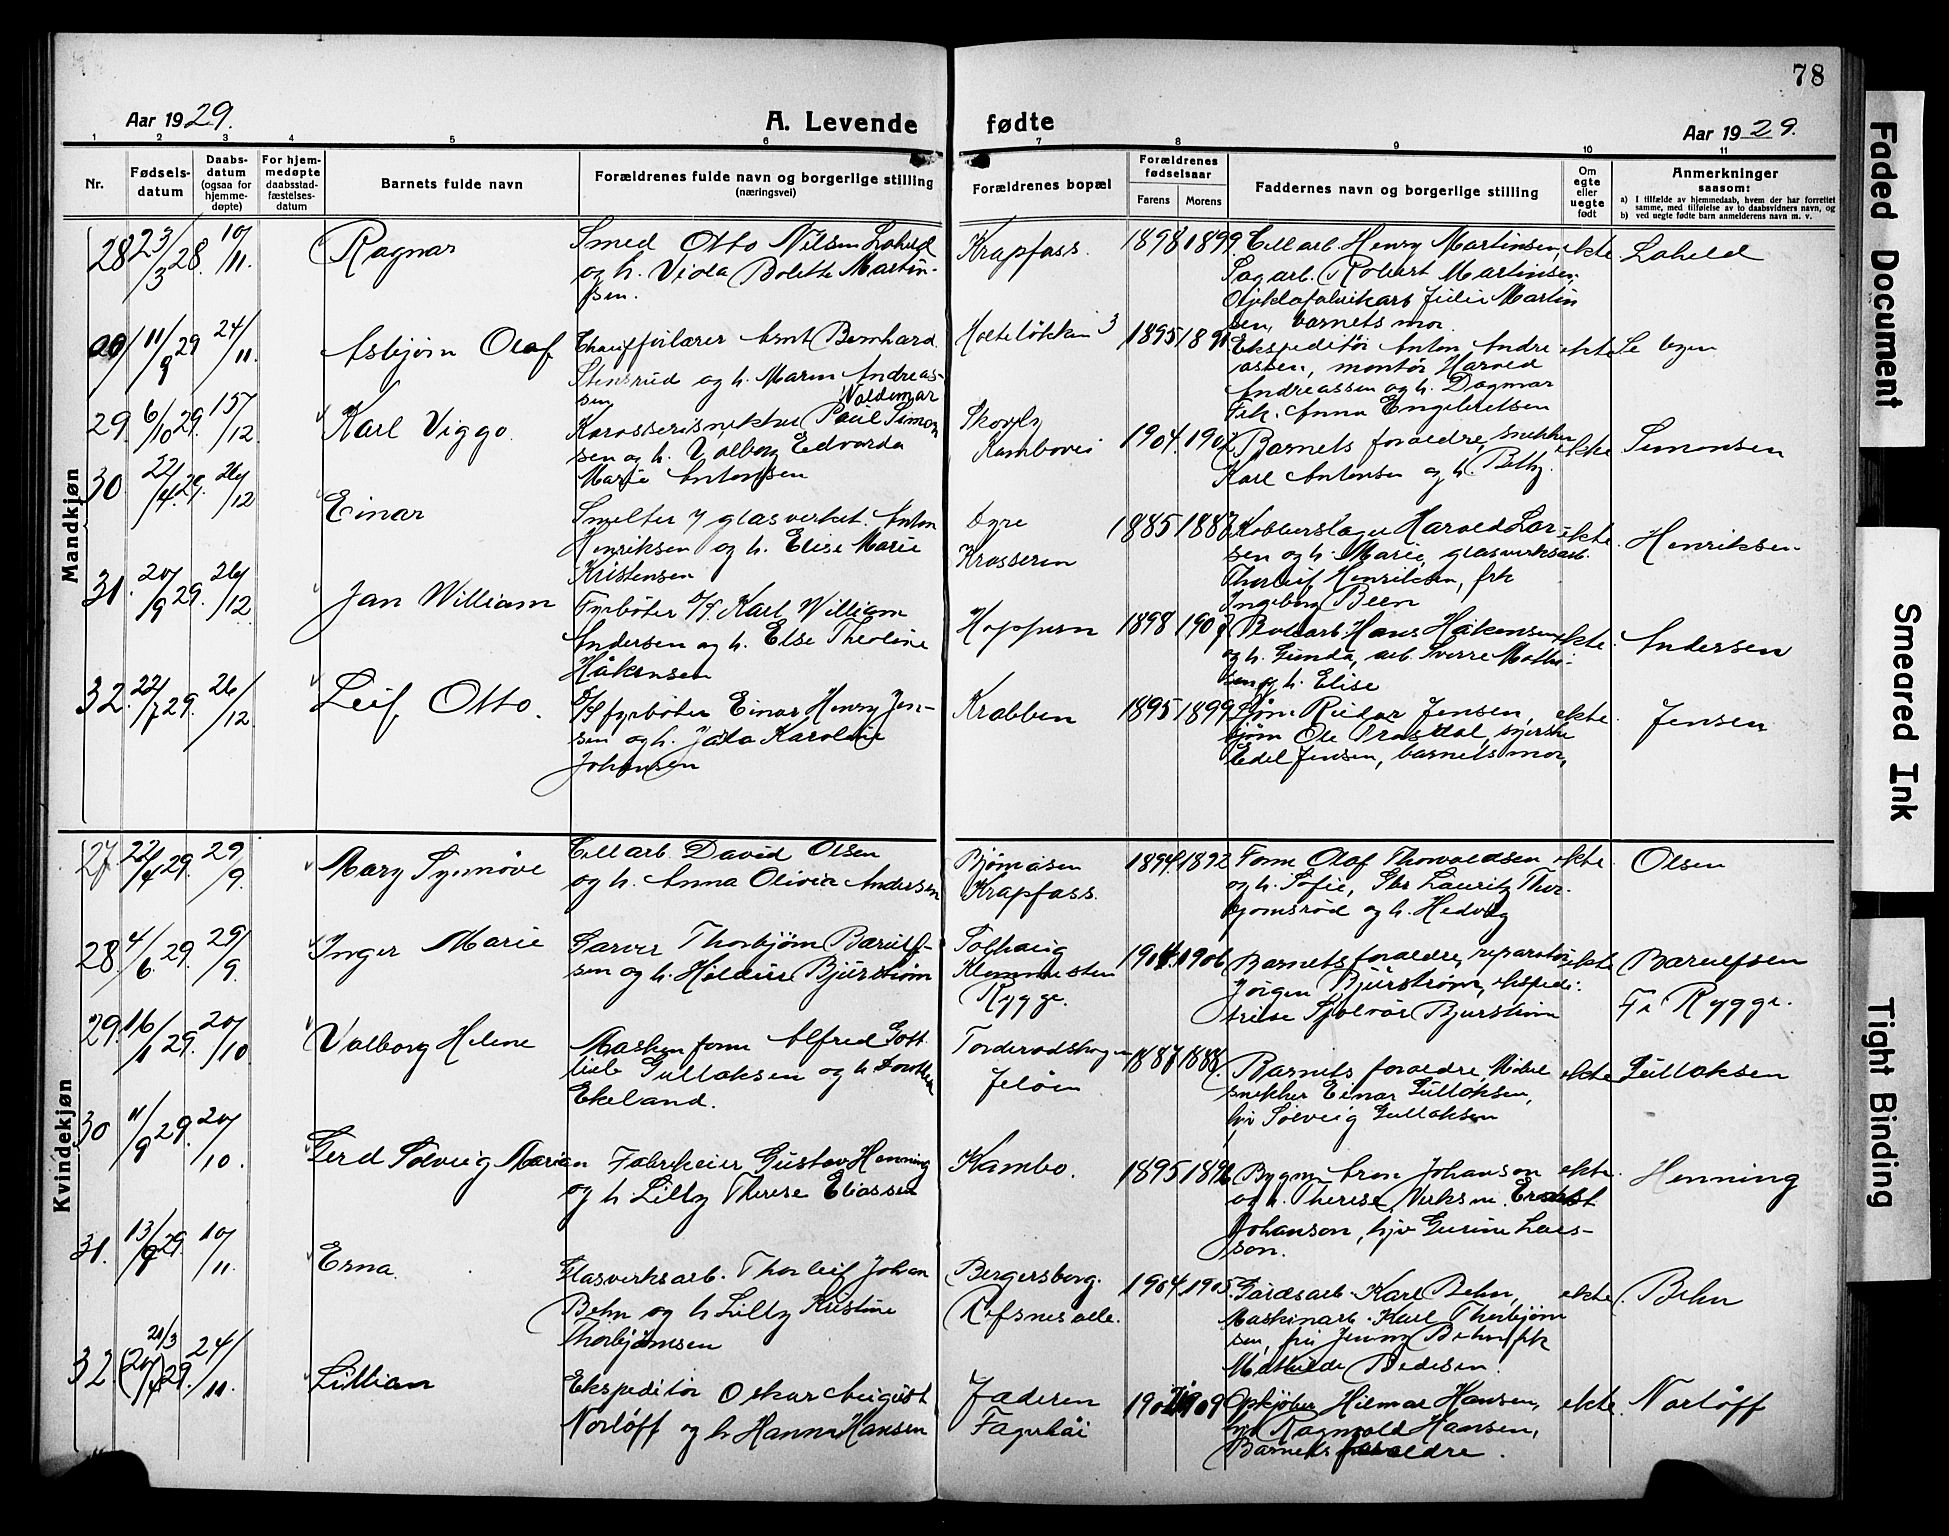 78
Aar 1929.
A. Levende fødte
Aar 1929.
1 2 3 4 5 6 7 8 9 10 11
Nr.
Fødsels-
datum
Daabs-
datum
(ogsaa for
hjemme-
døpte)
For hjem-
medøpte
daabsstad-
fæstelses-
datum
Barnets fulde navn
Forældrenes fulde navn og borgerlige stilling
(næringsvei)
Forældrenes bopæl
Forældrenes
fødselsaar
Farens Morens
Faddernes navn og borgerlige stilling
Om
egte
eller
uegte
født
Anmerkninger
saasom:
a) I tilfælde av hjemmedaab, hvem der har forrettet
samme, med tilføielse av to daabsvidners navn, og
b) ved uegte fødte barn anmelderens navn m. v.
Mandkjøn
28 23/3 28. 10/11. Ragnar
Smed Otto Nilsen
og h. Viola Bolette Martin-
sen.
Krapfoss. 1898 1899
Cellarb. Henry Martinsen,
Sagarb. Robert Martinsen,
Martin
sen, barnets mor
ekte
11/9 29 24/11. Asbjørn Olaf
Arnt Bernhard
Stensrud og h. Maren Andreas-
sen
1895
Ekspeditør Anton Andre
assen, montør Harald
Andreassen og h. Dagmar
Frk. Anna Engebretsen
ekte
29. 6/10 29. 15/12 Karl Viggo.
Valdemar
Karosserisnekker Paul Simon
sen og h. Valborg Edvarda
Marie Antonsen
Skovly
Kambovei
1904. 190
Barnets foraeldre, snekker
Karl Antonsen og h. Betty.
ekte Simonsen
30 22/4 29. 26/12 Einar
Smelter v glasverket. Anton
Henriksen og h. Elise Marie
Kristensen
Øvre
Krosseren
1885 188
Kobberslager Harald Lar-
sen og h. Marie, glasverksarb.
Thorleif Henriksen, frk
Ingeborg Been
ekte. Henriksen
31. 20/9 29. 26/12 Jan William
Fyrbøter D/S. Karl William
Andersen og h. Else Theoline
Håkensen
Hoppern 1898 190
Hans Håkensen
og h. Gunda, arb. Sverre Mathi-
sen og h. Elise
ekte. Andersen
32. 22/7 29. 26/12 Leif Otto.
D/S fyrbøter Einar Henry Jen-
sen og h. Karoline
Johansen
Krabben 1895 1899
Sjøm Reidar Jensen,
sjøm Ole syerske
Edel Jensen, barnets mor,
ekte. Jensen
Kvindekjøn
27. 22/4 29. 29/9. Mary Synnøve
Cellarb. David Olsen
og h. Anna Olivia Andersen
Bjørnåsen
Krapfoss.
1894. 1892
Form Olaf Thorvaldsen
og h. Sofie, Gbr Lauritz Thor-
bjørnsrød og h. Hedvig
ekte. Olsen
28 4/6 29. 29/9. Inger Marie
Garver Thorbjørn Barulf-
sen og h. Bjurstrøm
Solhaug
Rygge.
1906
Barnets foraeldre, reparatør
Jörgen Bjurstrøm, ekspedi-
trise Bjurstrøm
ekte Barulfsen
Rygge.
29. 16/1 29. 20/10 Valborg Helene
Maskinform Alfred Gott
lieb Gulloksen og h Dorothea
Ekeland.
Jeløen
1887 1888.
Barnets foraeldre, Möbel
snekker Einar Gulloksen,
frk Solveig Gulloksen
ekte Gulloksen
30 11/9 29. 20/10. Gerd Solveig Marian
Fabrikeier Gustav Henning
og h Lilly Therese Eliassen
Kambo. 1895 189
Bygm. Aron Johanson
og h. Therese, Verksm. Ernst
Johanson, hjv Gurine Lars-
son.
ekte. Henning
31. 13/9 29. 10/11. Erna.
Glasverksarb. Thorleif Johan
Behn og h Lilly Kristine
Thorbjørnsen
Bergersborg.
Refsnesalle.
1904. 1905.
Gardsarb. Karl Behn,
Maskinarb. Karl Thorbjørn
sen, fru Jenny Behn, frk
Mathilde Pedersen.
ekte. Behn
32. 21/3 (20/4) 29. 24/11. Lillian
Ekspeditør Oskar August
Norløff og h Hanna Hansen
Jæderen
Faguhöi
1909
Opkjøber Hilmar Hansen,
Ragnvald Hansen,
Barnets foraeldre.
ekte. Norløff
Faded Document
Smeared Ink
Tight Binding